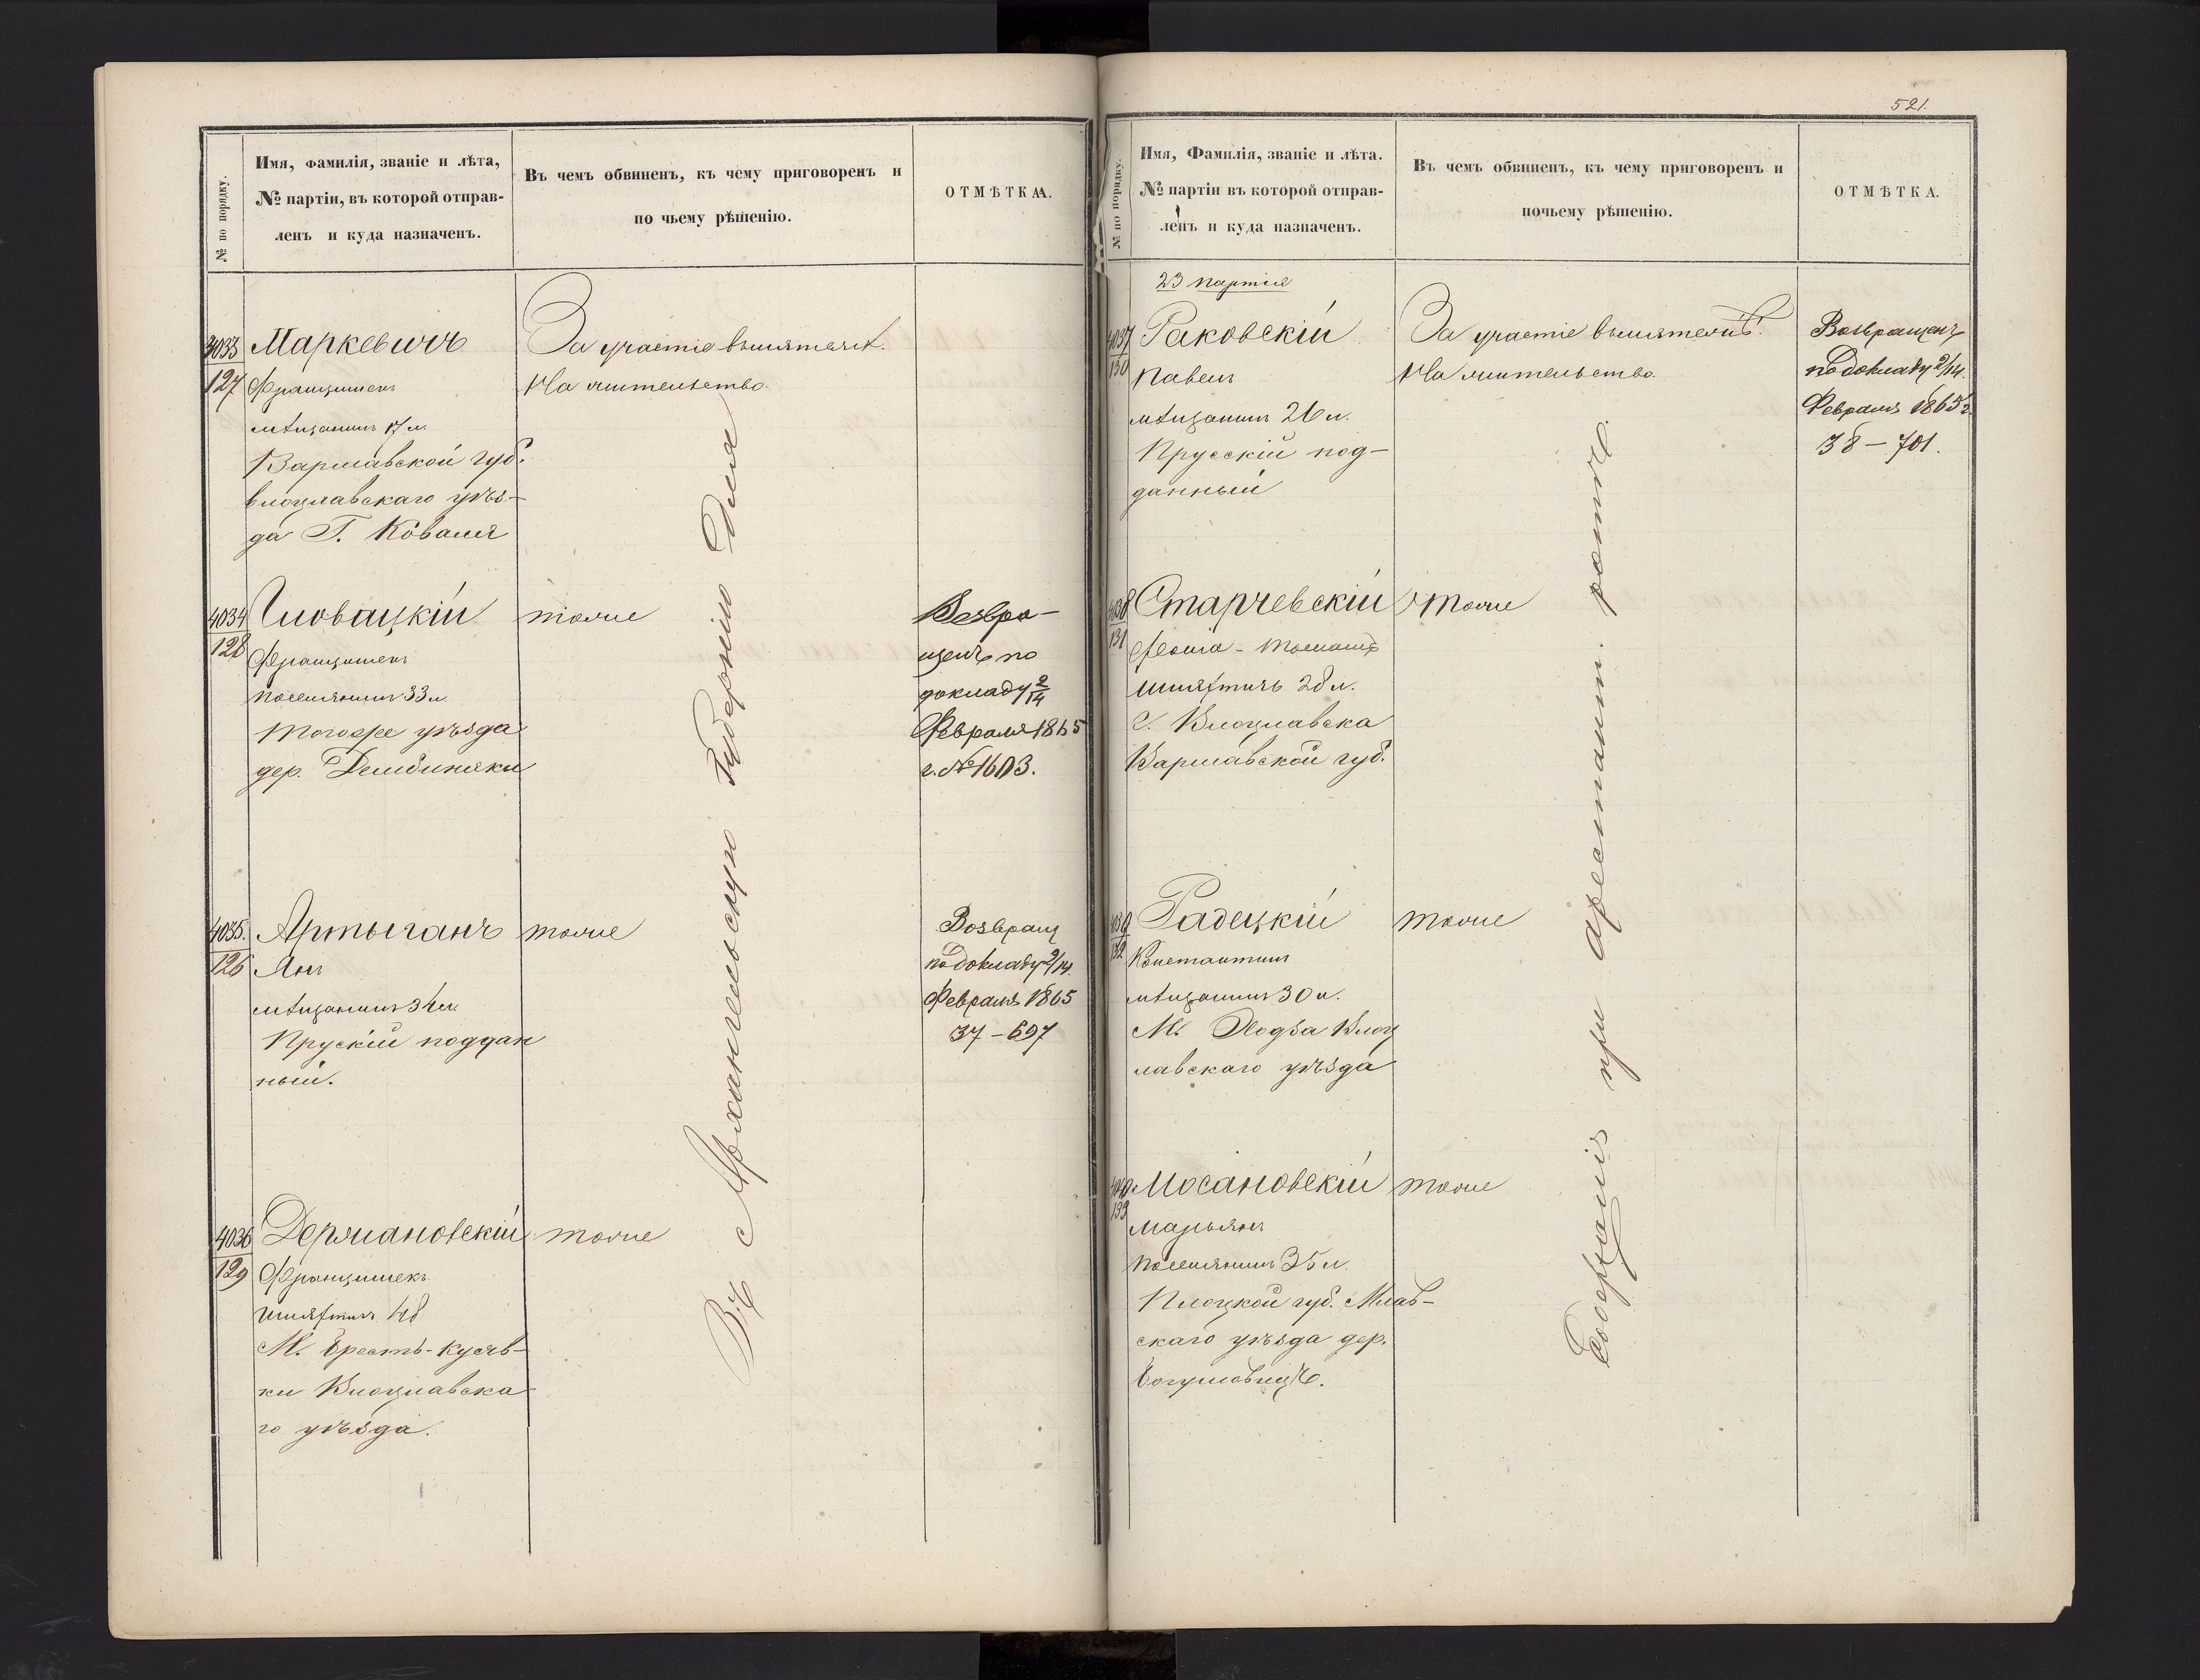 № по порядку.
Имя, фамилія, званіе и лѣта,
№ партіи, въ которой отправ-
ленъ и куда назначенъ.
Въ чемъ обвиненъ, къ чему приговоренъ и
по чьему рѣшенію.
ОТМѢТКА.
4033
127
Маркевичъ
Францишекъ
мѣщанинъ 17 л.
Варшавской губ.
влоцлавскаго уѣз-
да Г. Коваля
За участіе въ мятежѣ.
На жительство.
4034
128
Гловацкій
Францишекъ
поселянинъ 33 л.
тогоже уѣзда
дер.
тоже
Возвра-
щенъ по
докладу 2/14
Февраля 1865
г. № 1603.
4035.
126
Артыганъ
Янъ
мѣщанинъ 34 л.
Прускій поддан
ный.
тоже
Возвращ
по докладу 2/14.
Февраля 1865
37 – 697
4036
129
Держановскій
Францишекъ
шляхтичъ 48
М. Брестъ-Куяв-
ки Влоцлавска
го уѣзда.
тоже
въ Архангельскую Губернію для
521.
№ по порядку.
Имя, Фамилія, званіе и лѣта.
№ партіи въ которой отправ-
ленъ и куда назначенъ.
Въ чемъ обвиненъ, къ чему приговоренъ и
почьему рѣшенію.
ОТМѢТКА.
23 партія
4037
130
Раковскій
Павелъ
мѣщанинъ 26 л.
Прусскій под-
данный
За участіе въ мятежѣ.
На жительство.
Возвращенъ
по докладу 2/14.
Февраля 1865 г.
38 – 701.
4038
131
Старчевскій
Томашъ
шляхтичъ 28 л.
г. Влоцлавска
Варшавской губ.
тоже
4039
132
Радецкій
Константинъ
мѣщанинъ 30 л.
М. Ходза Влоц
лавскаго уѣзда
тоже
4040
133
Мосановскій
Марьянъ
поселянинъ 35 л.
Плоцкой губ. Млав-
скаго уѣзда дер.
тоже
Содержанія при арестант. ротѣ.